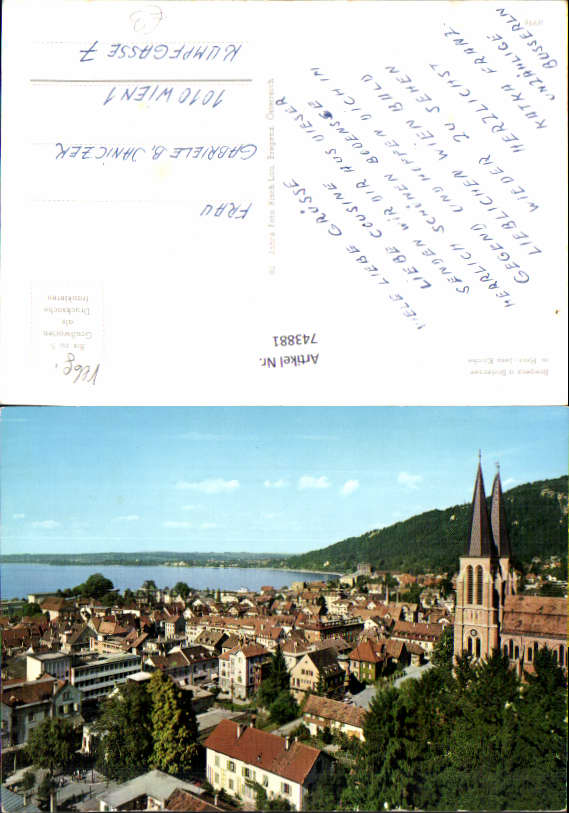 Bregenz a Bodensee
m. Herz-Jesu Kirche
Artikel Nr.
743881
VIELE LIEBE GRÜSSE
LIEBE COUSINE
SENDEN WIR DIR AUS DIESER
HERRLICH SCHÖNEN BODENSEE
GEGEND UND HOFFEN DICH IM
LIEBLICHEN WIEN BALD
WIEDER ZU SEHEN
HERZLICHST
KATKA FRANZ.
UNZÄHLIGE
BUSSERLN
Foto Risch-Lau, Bregenz, Österreich
Bis zu 5
Grußworten
als
Drucksache
frankieren
FRAU
GABRIELE B. JANICZEK
1010 WIEN 1
KUMPFGASSE 7